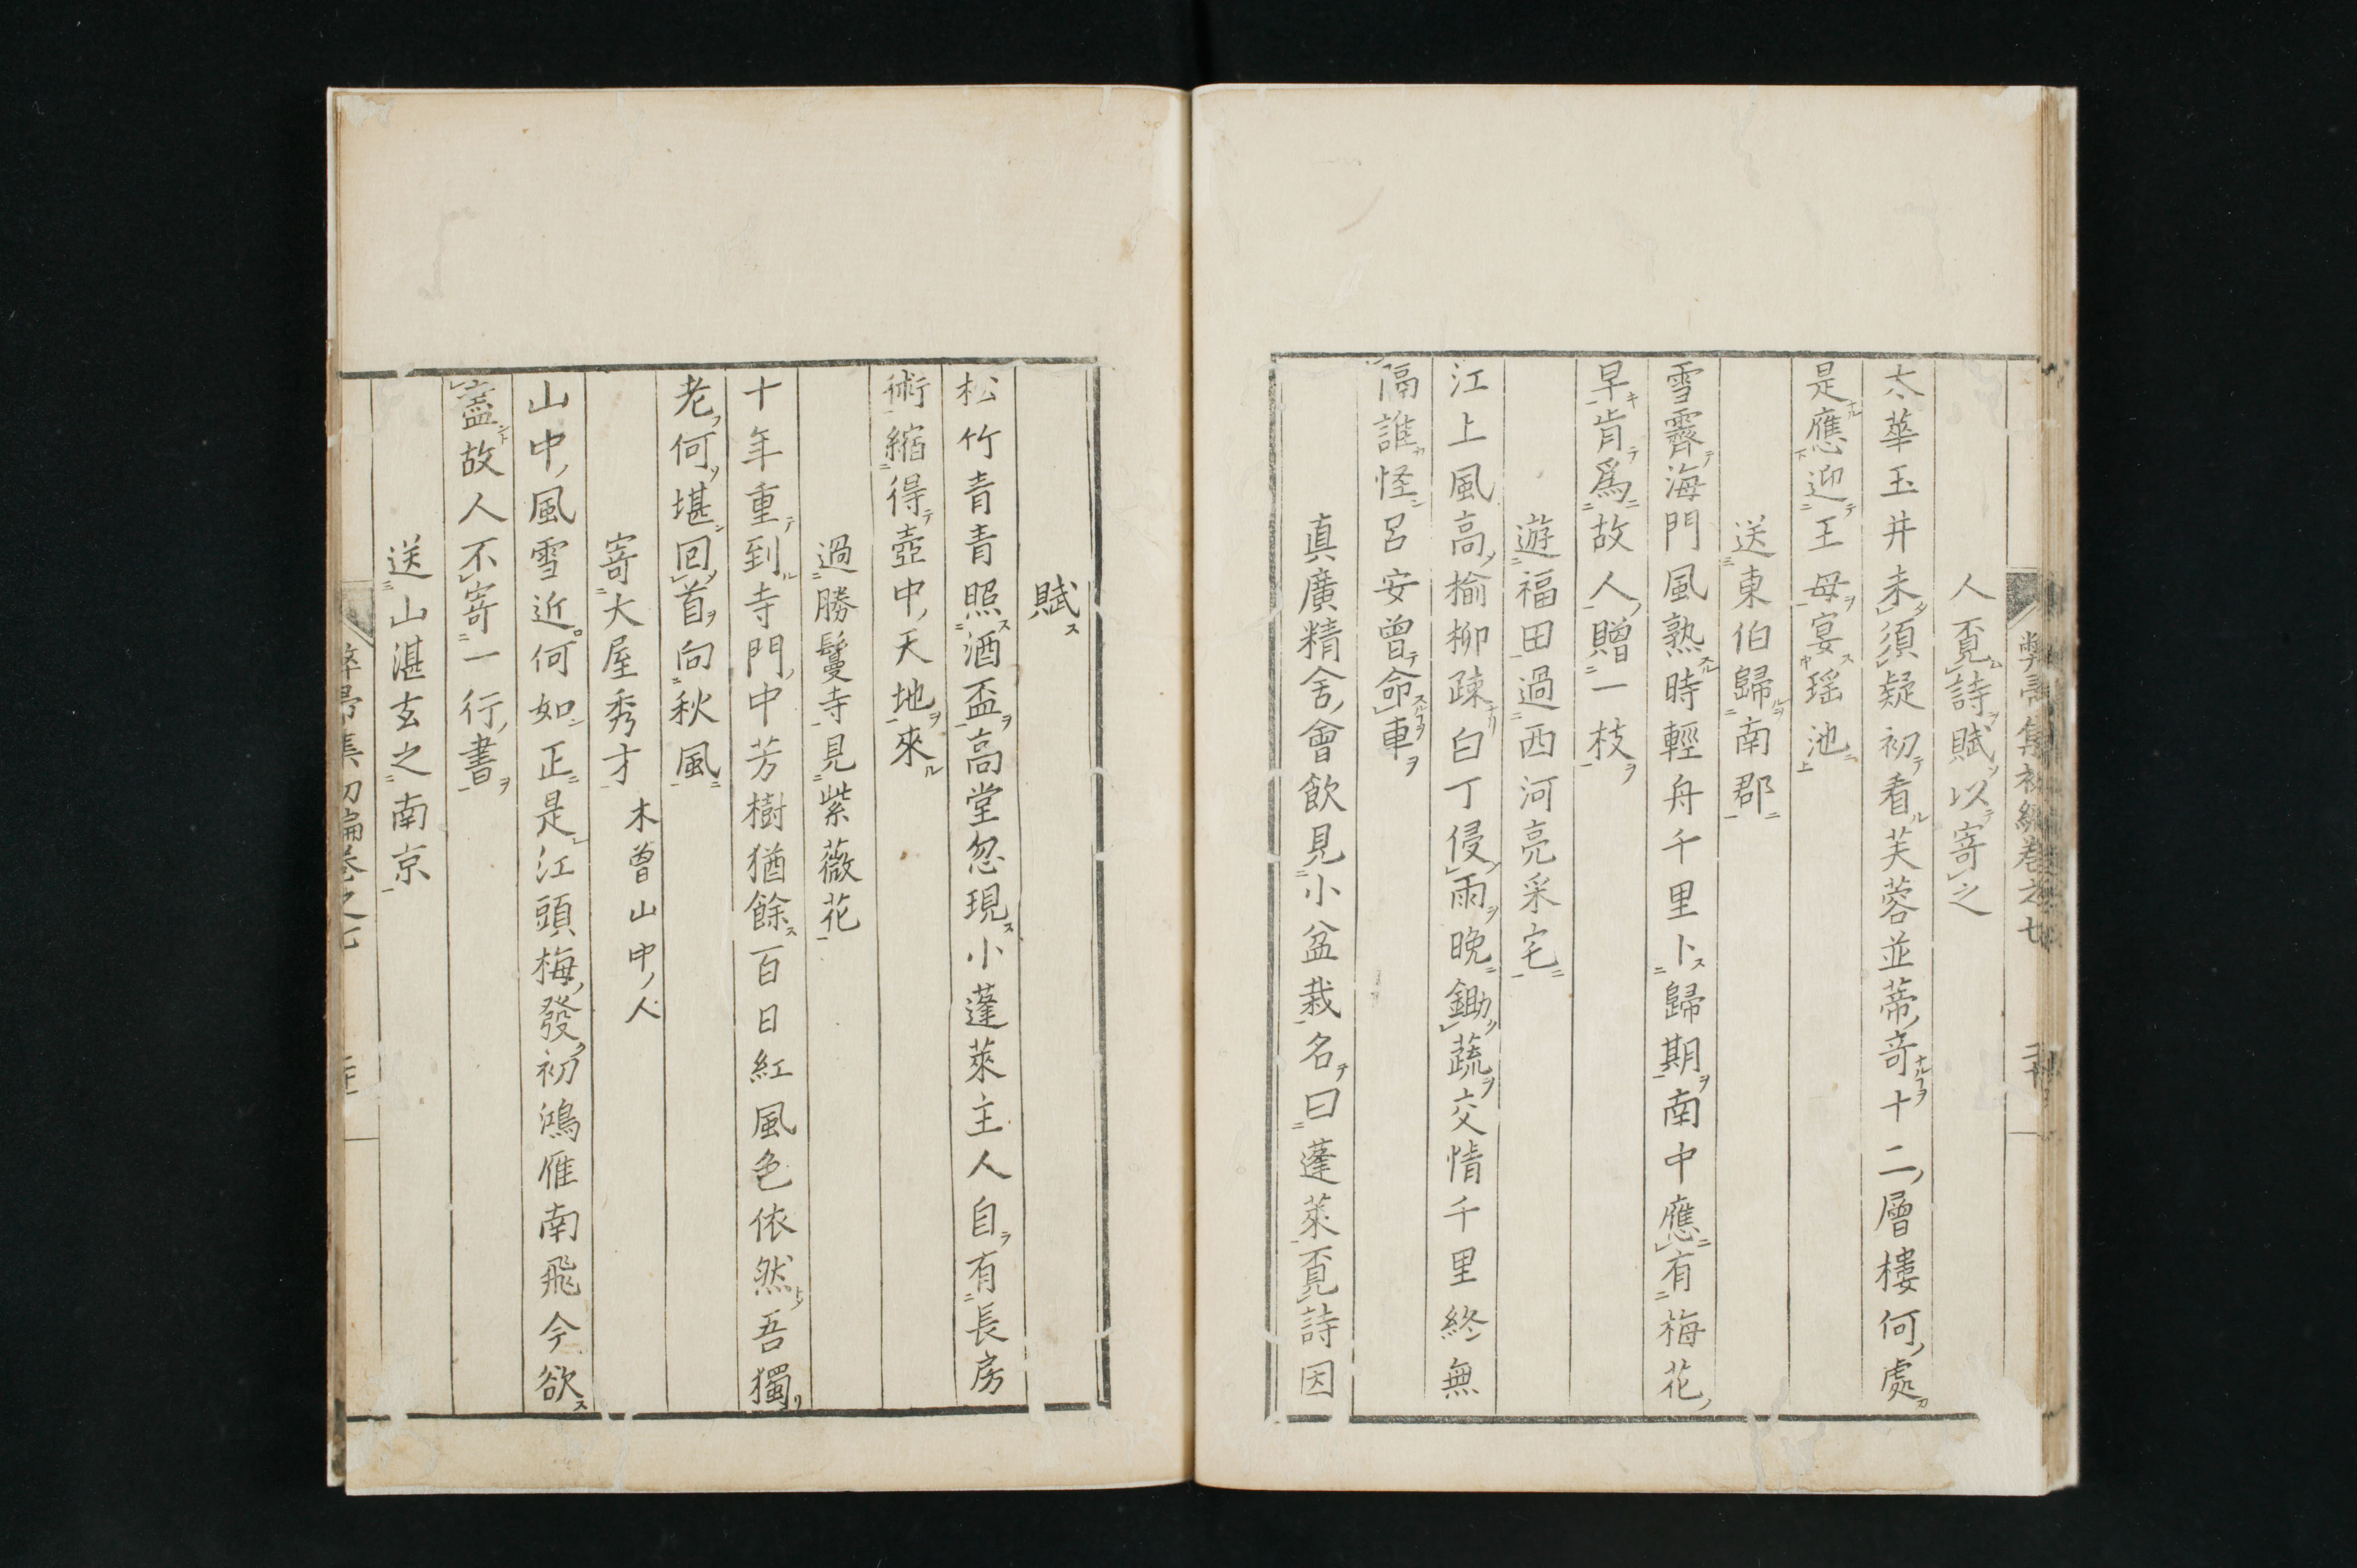 人覔詩賦以寄之
太華玉井未須疑初看芙蓉並蒂奇十二層樓何處
是應迎王母宴瑶池
送東伯歸南郡
雪霽海門風熟時輕舟千里卜歸期南中應有梅花
早肯爲故人贈一枝
遊福田過西河亮采宅
江上風高榆柳疎白丁侵雨晩鋤蔬交情千里終無
隔誰怪呂安曾命車
真廣精舍會飲見小盆栽名曰蓬萊覔詩因
賦
松竹青青照酒盃高堂忽現小蓬萊主人自有長房
術縮得壺中天地來
過勝鬘寺見紫薇花
十年重到寺門中芳樹猶餘百日紅風色依然吾獨
老何堪回首向秋風
寄大屋秀才木曾山中人
山中風雪近何如正是江頭梅發初鴻雁南飛今欲
盡故人不寄一行書
送山湛玄之南京